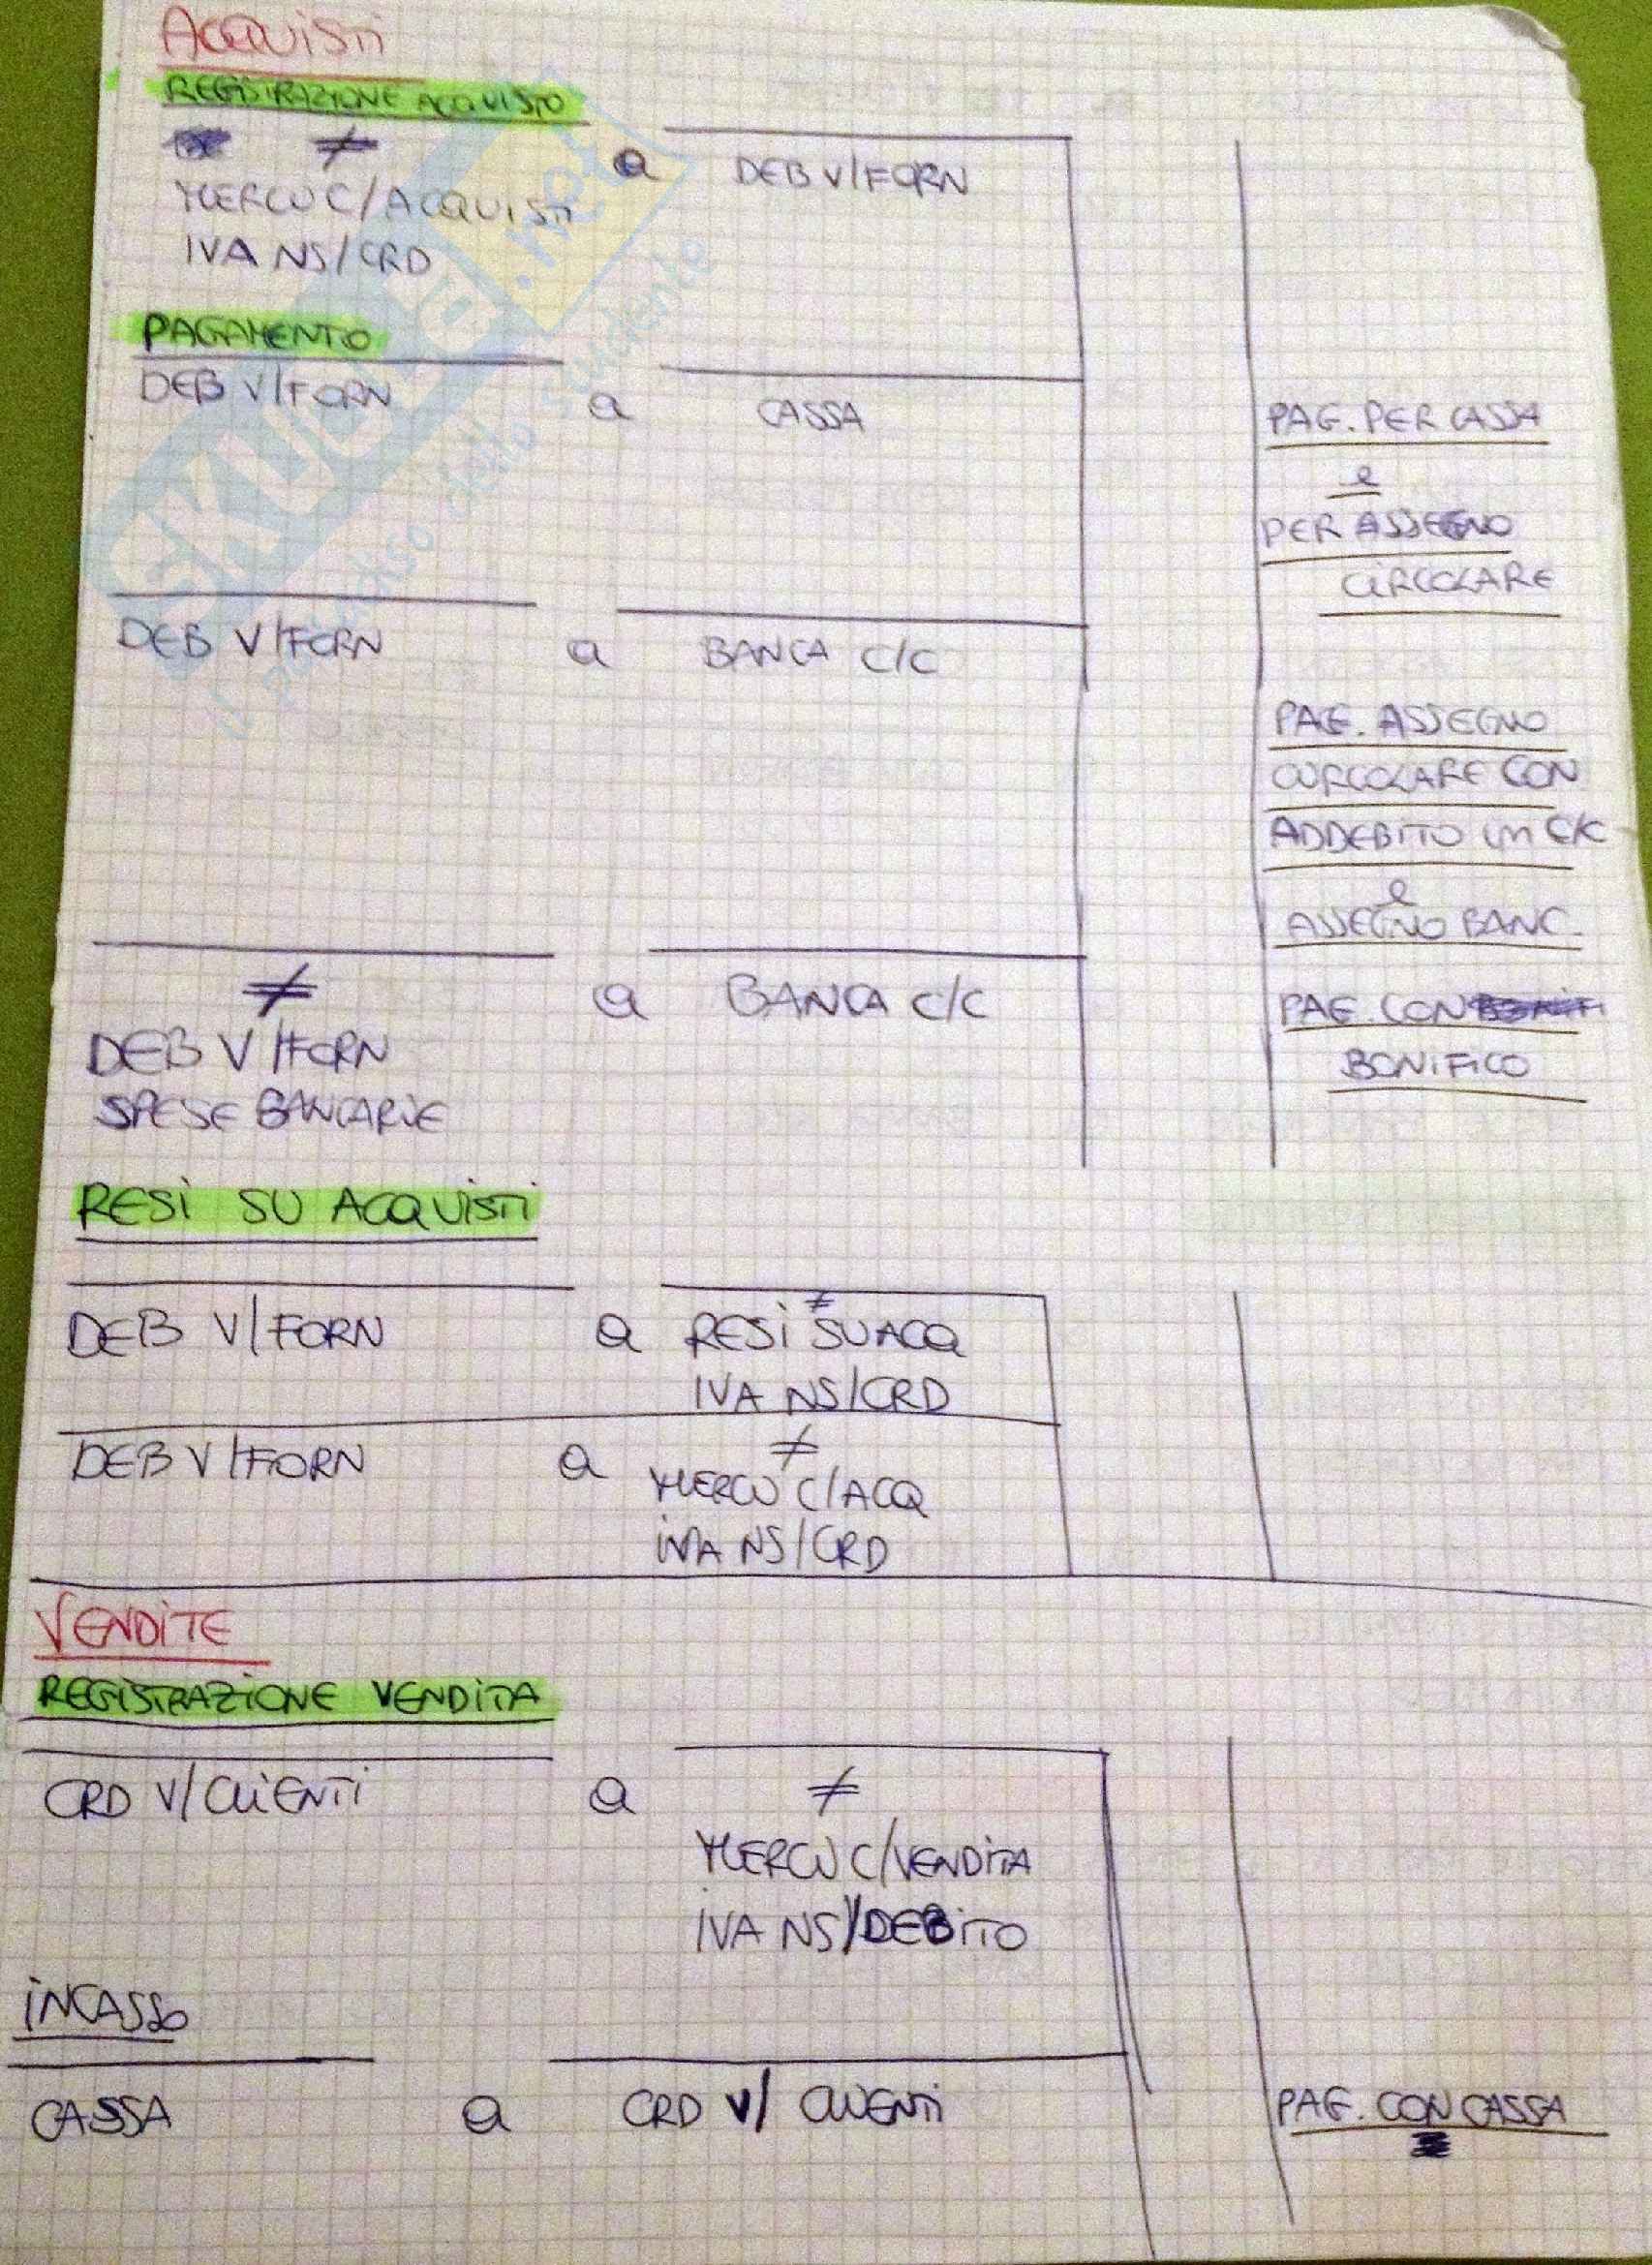 ACQUISTI
REGISTRAZIONE ACQUISTO
≠ a DEB V/FORN
MERCI C/ACQUISTI
IVA NS/CRD
PAGAMENTO
DEB V/FORN a CASSA PAG. PER CASSA
e
PER ASSEGNO
CIRCOLARE
DEB V/FORN a BANCA C/C
PAG. ASSEGNO
CIRCOLARE CON
ADDEBITO in C/C
e
ASSEGNO BANC.
≠ a BANCA C/C PAG. CON
DEB V/FORN BONIFICO
SPESE BANCARIE
RESI SU ACQUISTI
≠
DEB V/FORN a RESI SU ACQ
IVA NS/CRD
DEB V/FORN a ≠
MERCI C/ACQ
IVA NS/CRD
VENDITE
REGISTRAZIONE VENDITA
CRD V/CLIENTI a ≠
MERCI C/VENDITA
IVA NS/DEBITO
INCASSO
CASSA a CRD V/ CLIENTI PAG. CON CASSA
SKUOLA.net
il paradiso dello studente